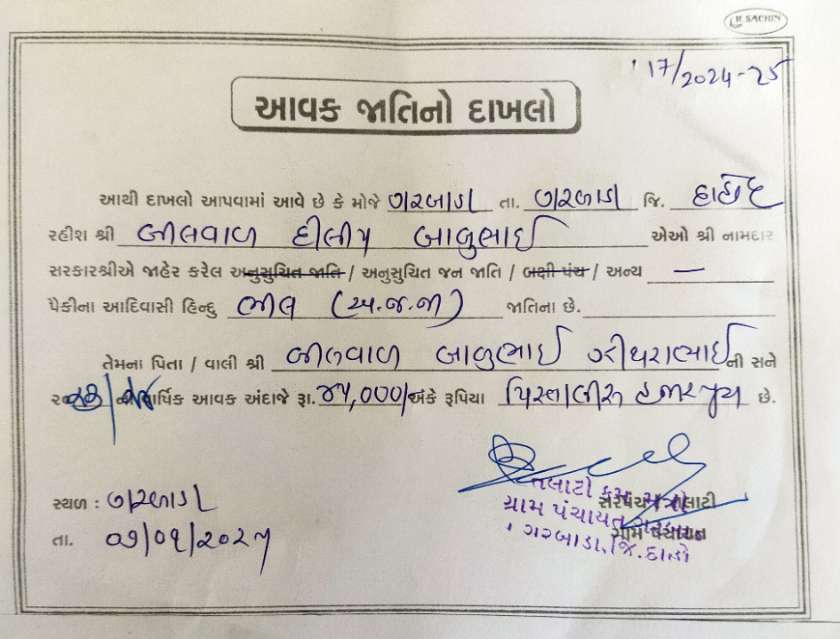 SACHIN
17/2024-25
આવક જાતિનો દાખલો
આથી દાખલો આપવામાં આવે છે કે મોજે ગરબાડા તા. ગરબાડા જિ. દાહોદ
રહીશ શ્રી બીલવાળ દીલીપ બાબુભાઈ એઓ શ્રી નામદાર
સરકારશ્રીએ જાહેર કરેલ અનુસુચિત જાતિ / અનુસુચિત જન જાતિ / બક્ષી પંચ / અન્ય —
પૈકીના આદિવાસી હિન્દુ ભીલ (અ.જ.જા) જાતિના છે.
તેમના પિતા / વાલી શ્રી બીલવાળ બાબુભાઈ ની સને
વાર્ષિક આવક અંદાજે રૂા. ૪૫,000/ અંકે રૂપિયા પિસ્તાલીસ હજાર પુરા છે.
સ્થળ : ગરબાડા
તા.
સરપંચ / તલાટી
ગ્રામ પંચાયત
તલાટી કમ મંત્રી
ગ્રામ પંચાયત ગરબાડા
ગરબાડા, જિ. દાહોદ